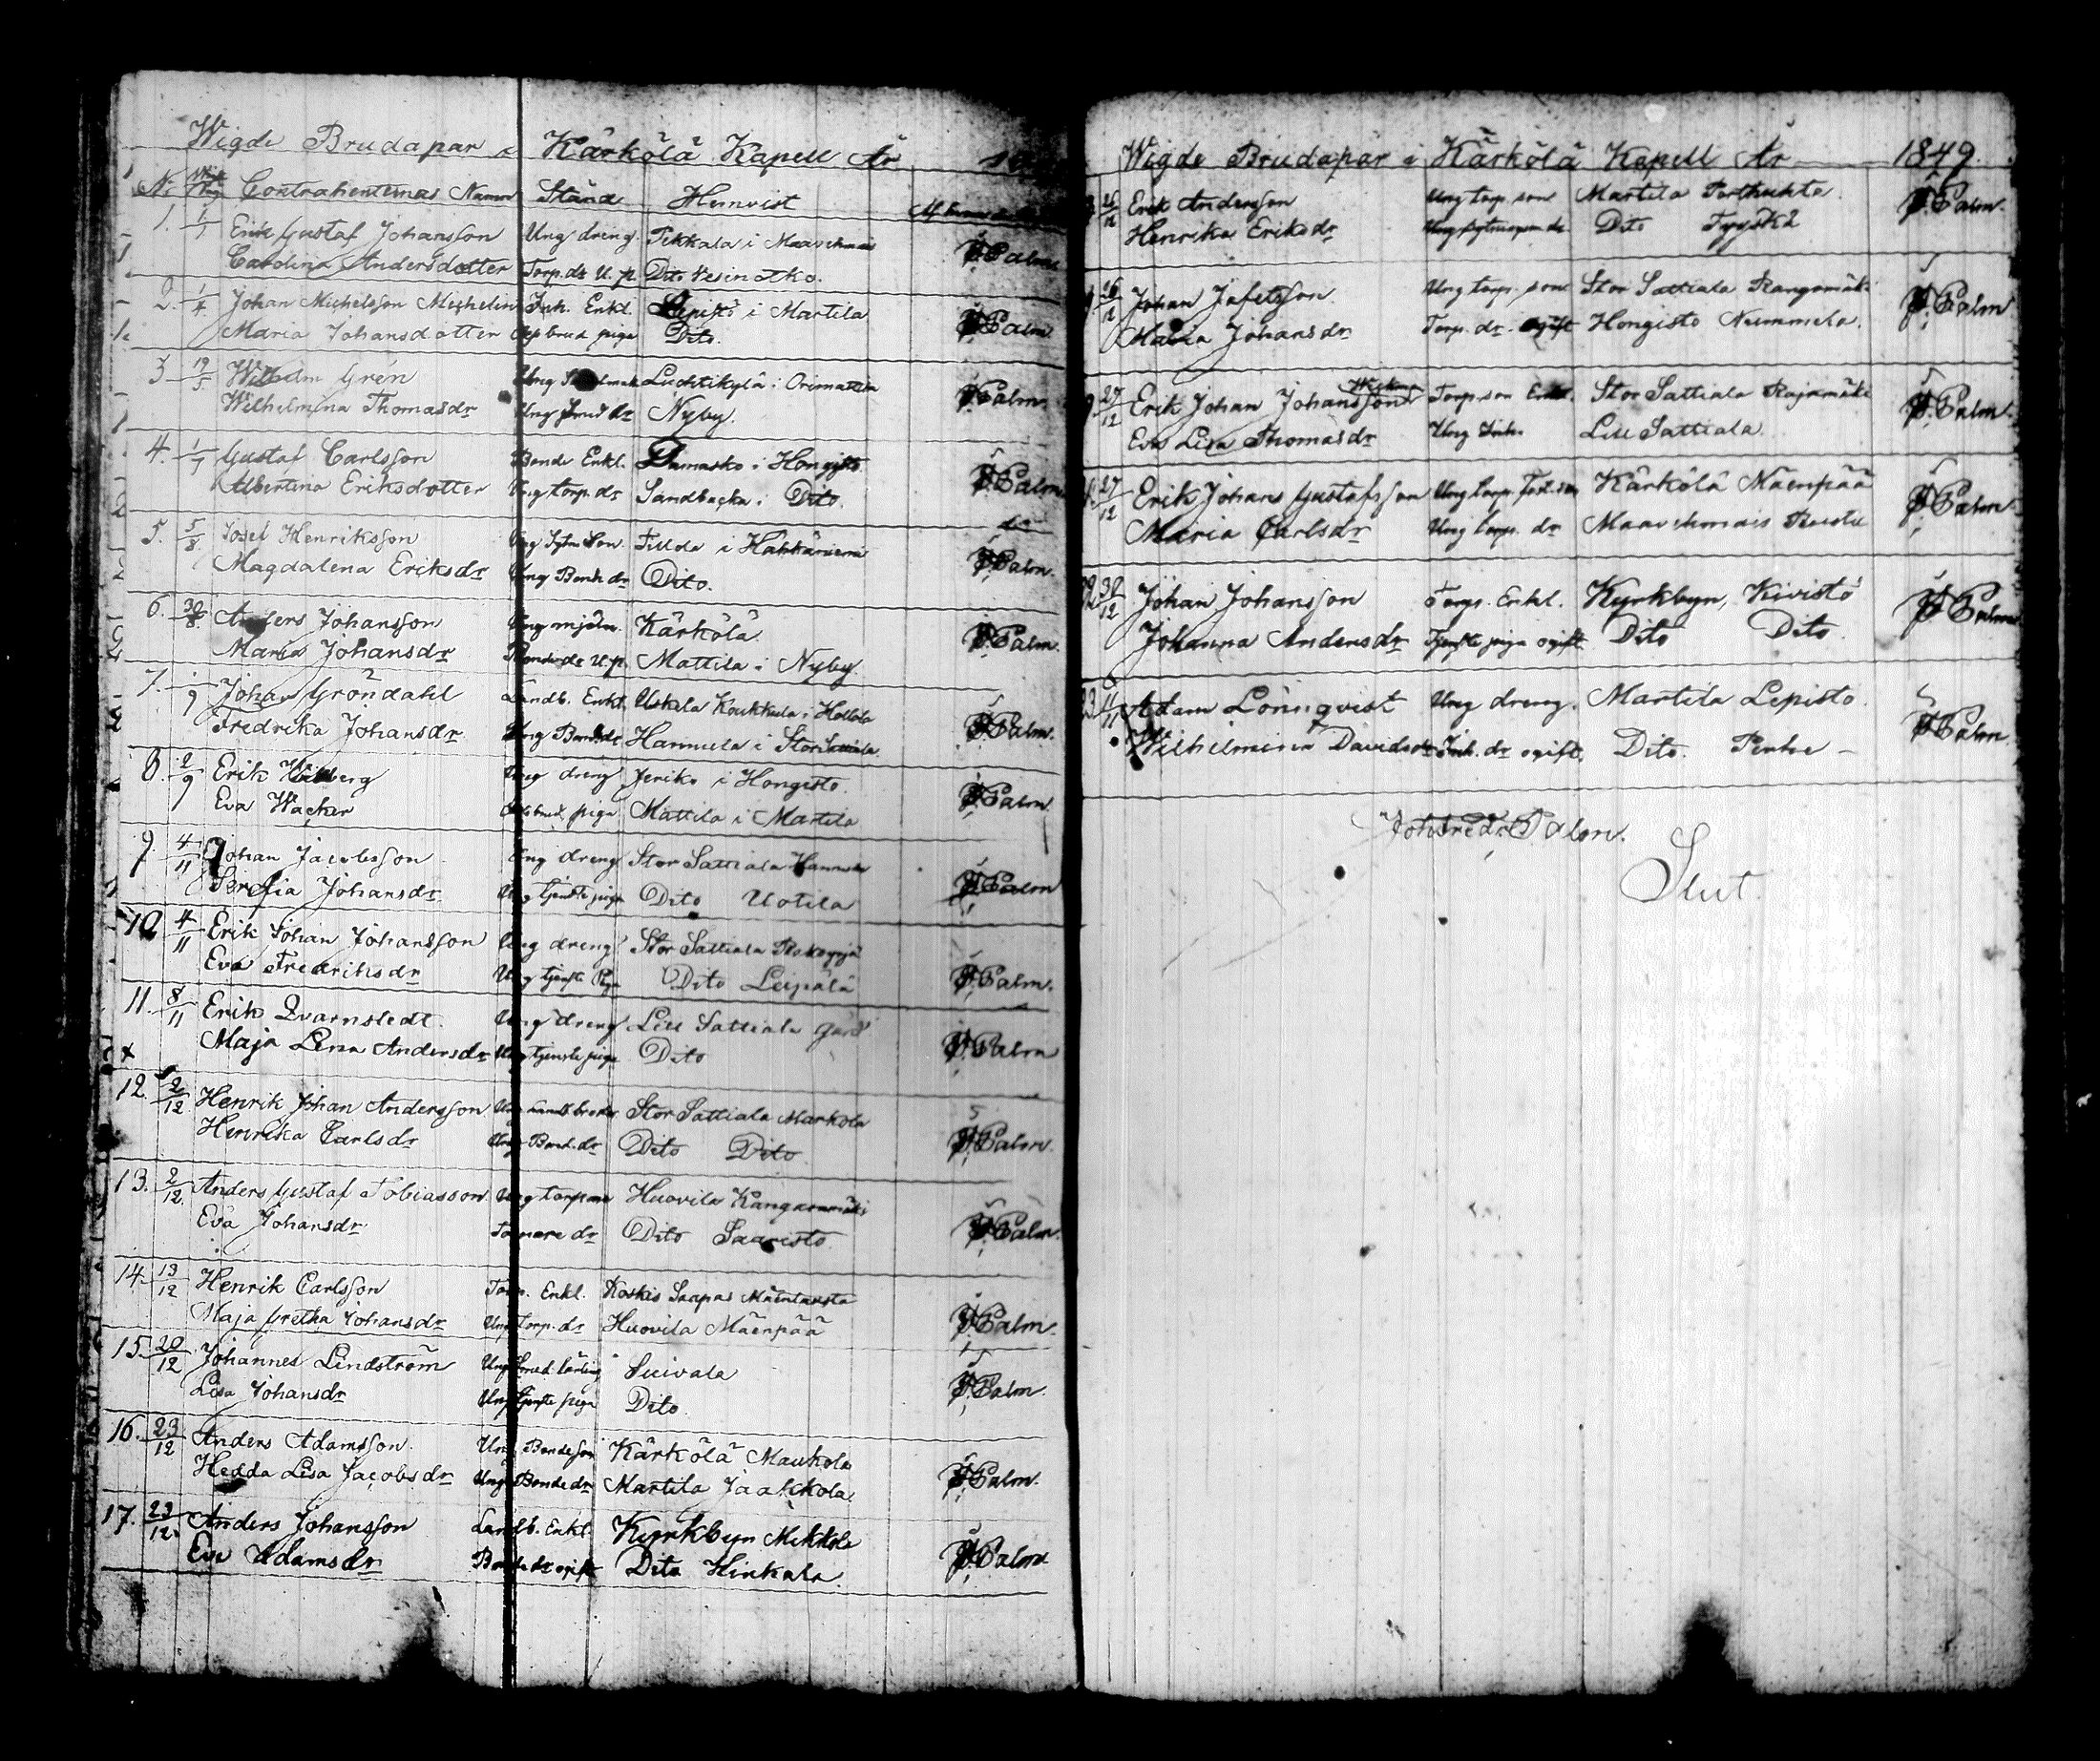 Wigde Brudapar i Kärkölä Kapell År
No Contrahenternas Namn Stånd Hemvist
1. 1/1 Erik Gustaf Johansson Ung dreng Tekkala i Maavehmais J:F:Palm
Carolina Andersdotter Torp.dr U. p. Dito Vesinotko.
2. 1/4 Johan Michelsson Michelin Inh. Enkl. Lepistö i Martila J:F:Palm
Maria Johansdotter piga Dito.
3 19/5 Wilhelm Grén Ung Luchtikylä i Orimattila J:F:Palm.
Wilhelmina Thomasdr Ung Smed dr Nyby.
4. 1/7 Gustaf Carlsson Bonde Enkl. Damasko i Hongisto J:F:Palm
Albertina Eriksdotter Ung torp. dr Sandbacka i Dito.
5. 5/8 Josef Henriksson Ung Sytn. Son. Tillola i Hakkäriema J:F:Palm.
Magdalena Eriksdr Ung Bonde dr Dito.
6. 30/8. Anders Johansson Ung mjöln. Kärkölä J:F:Palm.
Maria Johansdr Bonde dr U. p. Mattila i Nyby.
7. /9 Johan Gröndahl Landb. Enkl. Uskila Koukkula i Hollola J:F:Palm.
Fredrika Johansdr Ung Bonde dr Hannula i Stor Sattiala
8. 2/9 Erik Ung dreng Jeriko i Hongisto. J:F:Palm
Eva Wacker piga Mattila i Martila
9. 4/11 Johan Jacobsson Ung dreng Stor Sattiala Hannula J:F:Palm
Serafia Johansdr Ung tjenste piga Dito Uotila
10 4/11 Erik Johan Johansson Ung dreng Stor Sattiala J:F:Palm.
Eva Fredriksdr Ung tjenste Piga Dito Leipälä
11. 8/11 Erik Qvarnstedt. Ung dreng Lill Sattiala Gård J:F:Palm
Maja Lena Andersdr Ung tjenste piga Dito
12. 2/12 Henrik Johan Andersson Ung Landb. broder Stor Sattiala Markola J:F:Palm.
Henrika Carlsdr Ung Bond. dr Dito Dito
13. 2/12 Anders Gustaf Tobiasson Ung torpare Huovila Kangasmäki J:F:Palm.
Eva Johansdr Torpare dr Dito Saaristo
14. 13/12 Henrik Carlsson Torp. Enkl. Koskis Saapas Mäentausta J:F:Palm.
Maja Gretha Johansdr Ung Torp. dr Huovila Mäenpää
15. 20/12 Johannes Lindström Ung Smed. lärling Suivala J:F:Palm.
Lisa Johansdr Ung tjenste piga Dito
16. 23/12 Anders Adamsson. Ung Bondeson Kärkölä Maukola J:F:Palm.
Hedda Lisa Jacobsdr Ung Bonde dr Martila Jaakkola
17. 23/12. Anders Johansson Landb. Enkl. Kyrkbyn Mikkola J:F:Palm
Eva Adamsdr Bonde dr ogift Dito Hinkala.
Wigde Brudapar i Kärkölä Kapell År 1849.
26/12 Erik Andersson Ung torp. son Martila Torhukta J:F:Palm.
Henrika Eriksdr Dito Tyyskä
26/12 Johan Jafetsson Ung torp. son Stor Sattiala Kangasmäki J:F:Palm
Maria Johansdr Torp. dr. ogift Hongisto Nummela.
27/12 Erik Johan Johansson Torp. son Enkl. Stor Sattiala Rajamäki J:F:Palm
Eva Lisa Thomasdr Ung Inh. Lill Sattiala
27/12 Erik Johans Gustafsson Ung torp. Kärkölä Mäenpää J:F:Palm
Maria Carlsdr Ung torp. dr Maavehmais
30/12 Johan Johansson Torp. Enkl. Kyrkbyn, Kivistö J:F:Palm
Johanna Andersdr Tjenste piga ogift. Dito Dito
11/11 Adam Lönnqvist Ung dreng. Martila Lepistö J:F:Palm
Wilhelmina Davidsdr Inh. dr ogift. Dito. Pentu
Joh:Fredr:Palm.
Slut.